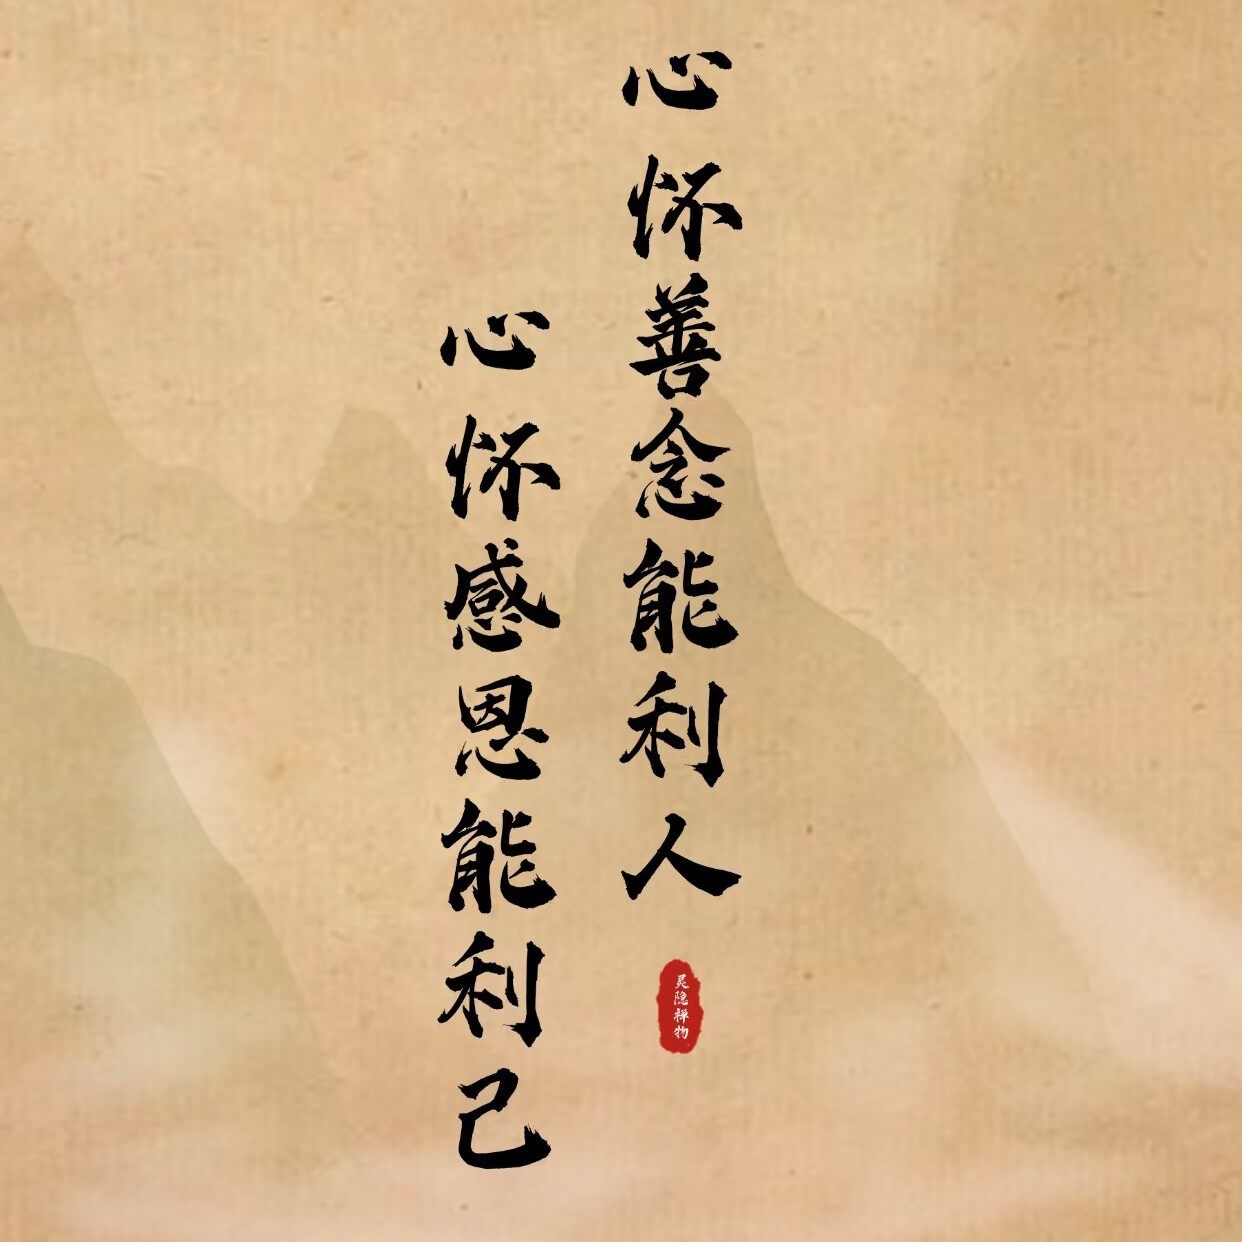 心怀善念能利人
心怀感恩能利己
灵隐禅物